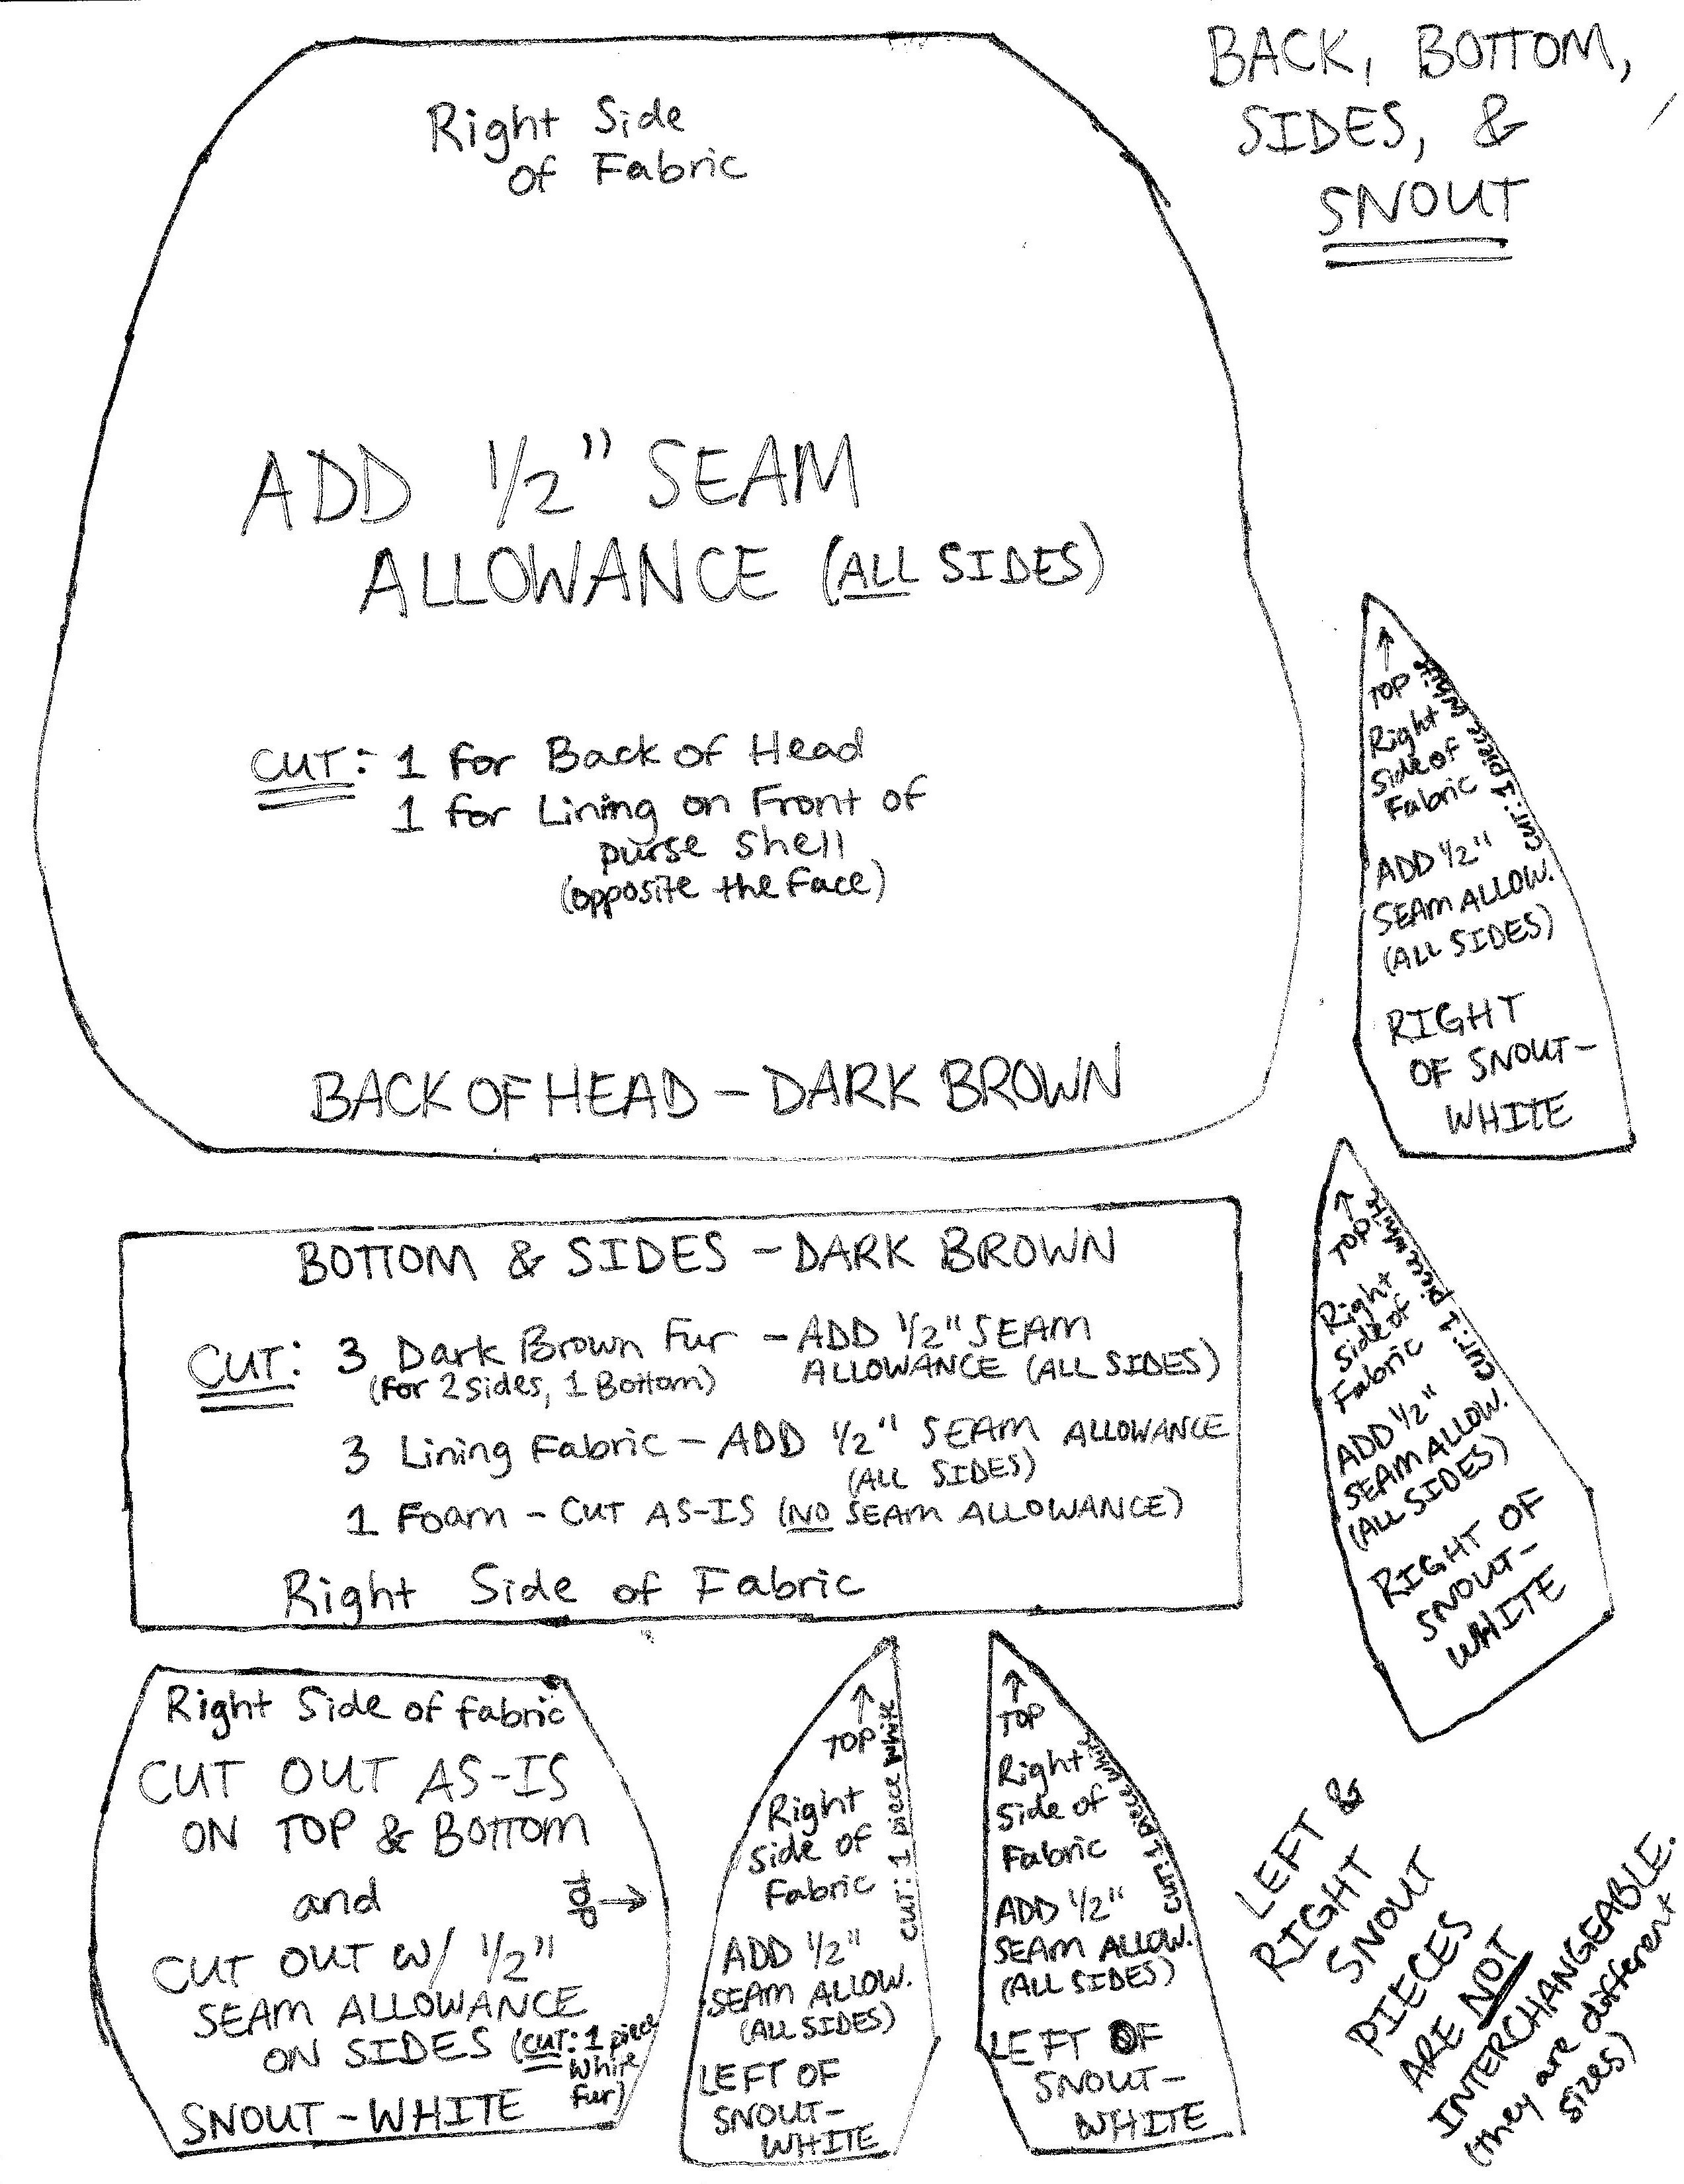 BACK, BOTTOM,
SIDES, &
SNOUT
Right Side
of Fabric
ADD 1/2" SEAM
ALLOWANCE (ALL SIDES)
CUT: 1 for Back of Head
1 for Lining on Front of
purse shell
(opposite the face)
BACK OF HEAD - DARK BROWN
↑
TOP
Right
Side of
Fabric
cut: 1 piece white
ADD 1/2"
SEAM ALLOW.
(ALL SIDES)
RIGHT
OF SNOUT-
WHITE
BOTTOM & SIDES - DARK BROWN
CUT: 3 Dark Brown Fur - ADD 1/2" SEAM
(for 2 sides, 1 Bottom) ALLOWANCE (ALL SIDES)
3 Lining Fabric - ADD 1/2" SEAM ALLOWANCE
(ALL SIDES)
1 Foam - CUT AS-IS (NO SEAM ALLOWANCE)
Right Side of Fabric
↑
TOP
Right
Side of
Fabric
cut: 1 piece white
ADD 1/2"
SEAM ALLOW.
(ALL SIDES)
RIGHT OF
SNOUT-
WHITE
Right Side of fabric
CUT OUT AS-IS
ON TOP & BOTTOM
and
top →
CUT OUT W/ 1/2"
SEAM ALLOWANCE
ON SIDES (cut: 1 piece
white
fur)
SNOUT - WHITE
↑
TOP
Right
Side of
Fabric
cut: 1 piece white
ADD 1/2"
SEAM ALLOW.
(ALL SIDES)
LEFT OF
SNOUT-
WHITE
↑
TOP
Right
Side of
Fabric
cut: 1 piece white
ADD 1/2"
SEAM ALLOW.
(ALL SIDES)
LEFT OF
SNOUT-
WHITE
LEFT &
RIGHT
SNOUT
PIECES
ARE NOT
INTERCHANGEABLE.
(they are different
sizes)